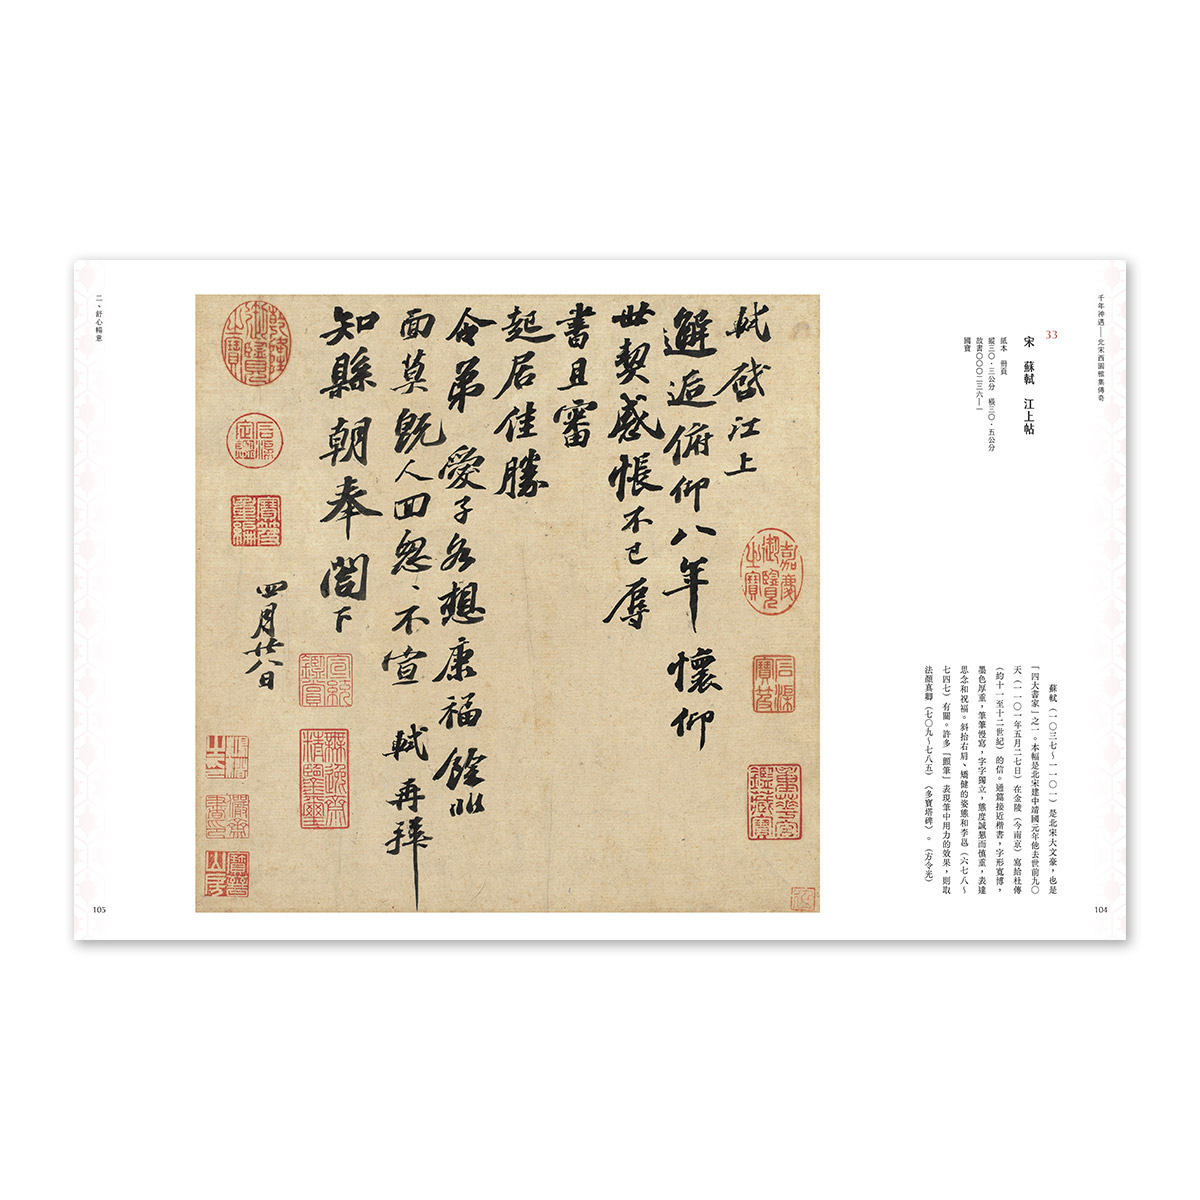 千年神遇——北宋西園雅集傳奇
33
宋 蘇軾 江上帖
紙本 冊頁
縱三〇．三公分 橫三〇．五公分
故書〇〇〇二三六—一
國寶
蘇軾（一〇三七～一一〇一）是北宋大文豪，也是
「四大書家」之一。本幅是北宋建中靖國元年他去世前九〇
天（一一〇一年五月二七日）在金陵（今南京）寫給杜傳
（約十一至十二世紀）的信。通篇接近楷書，字形寬博，
墨色厚重，筆筆慢寫，字字獨立，態度誠懇而慎重，表達
思念和祝福。斜抬右肩、矯健的姿態和李邕（六七八～
七四七）有關。許多「顫筆」表現筆中用力的效果，則取
法顏真卿（七〇九～七八五）〈多寶塔碑〉。（方令光）
104
軾啓江上
邂逅俯仰八年懷仰
世契感悵不已辱
書且審
起居佳勝
令弟愛子各想康福餘非
面莫既人回怱怱不宣 軾再拜
知縣朝奉閤下
四月廿八日
嘉慶御覽之寶
石渠寶笈
乾隆御覽之寶
石渠定鑑
寶笈重編
宣統鑑賞
無逸齋精鑒璽
二、舒心暢意
105